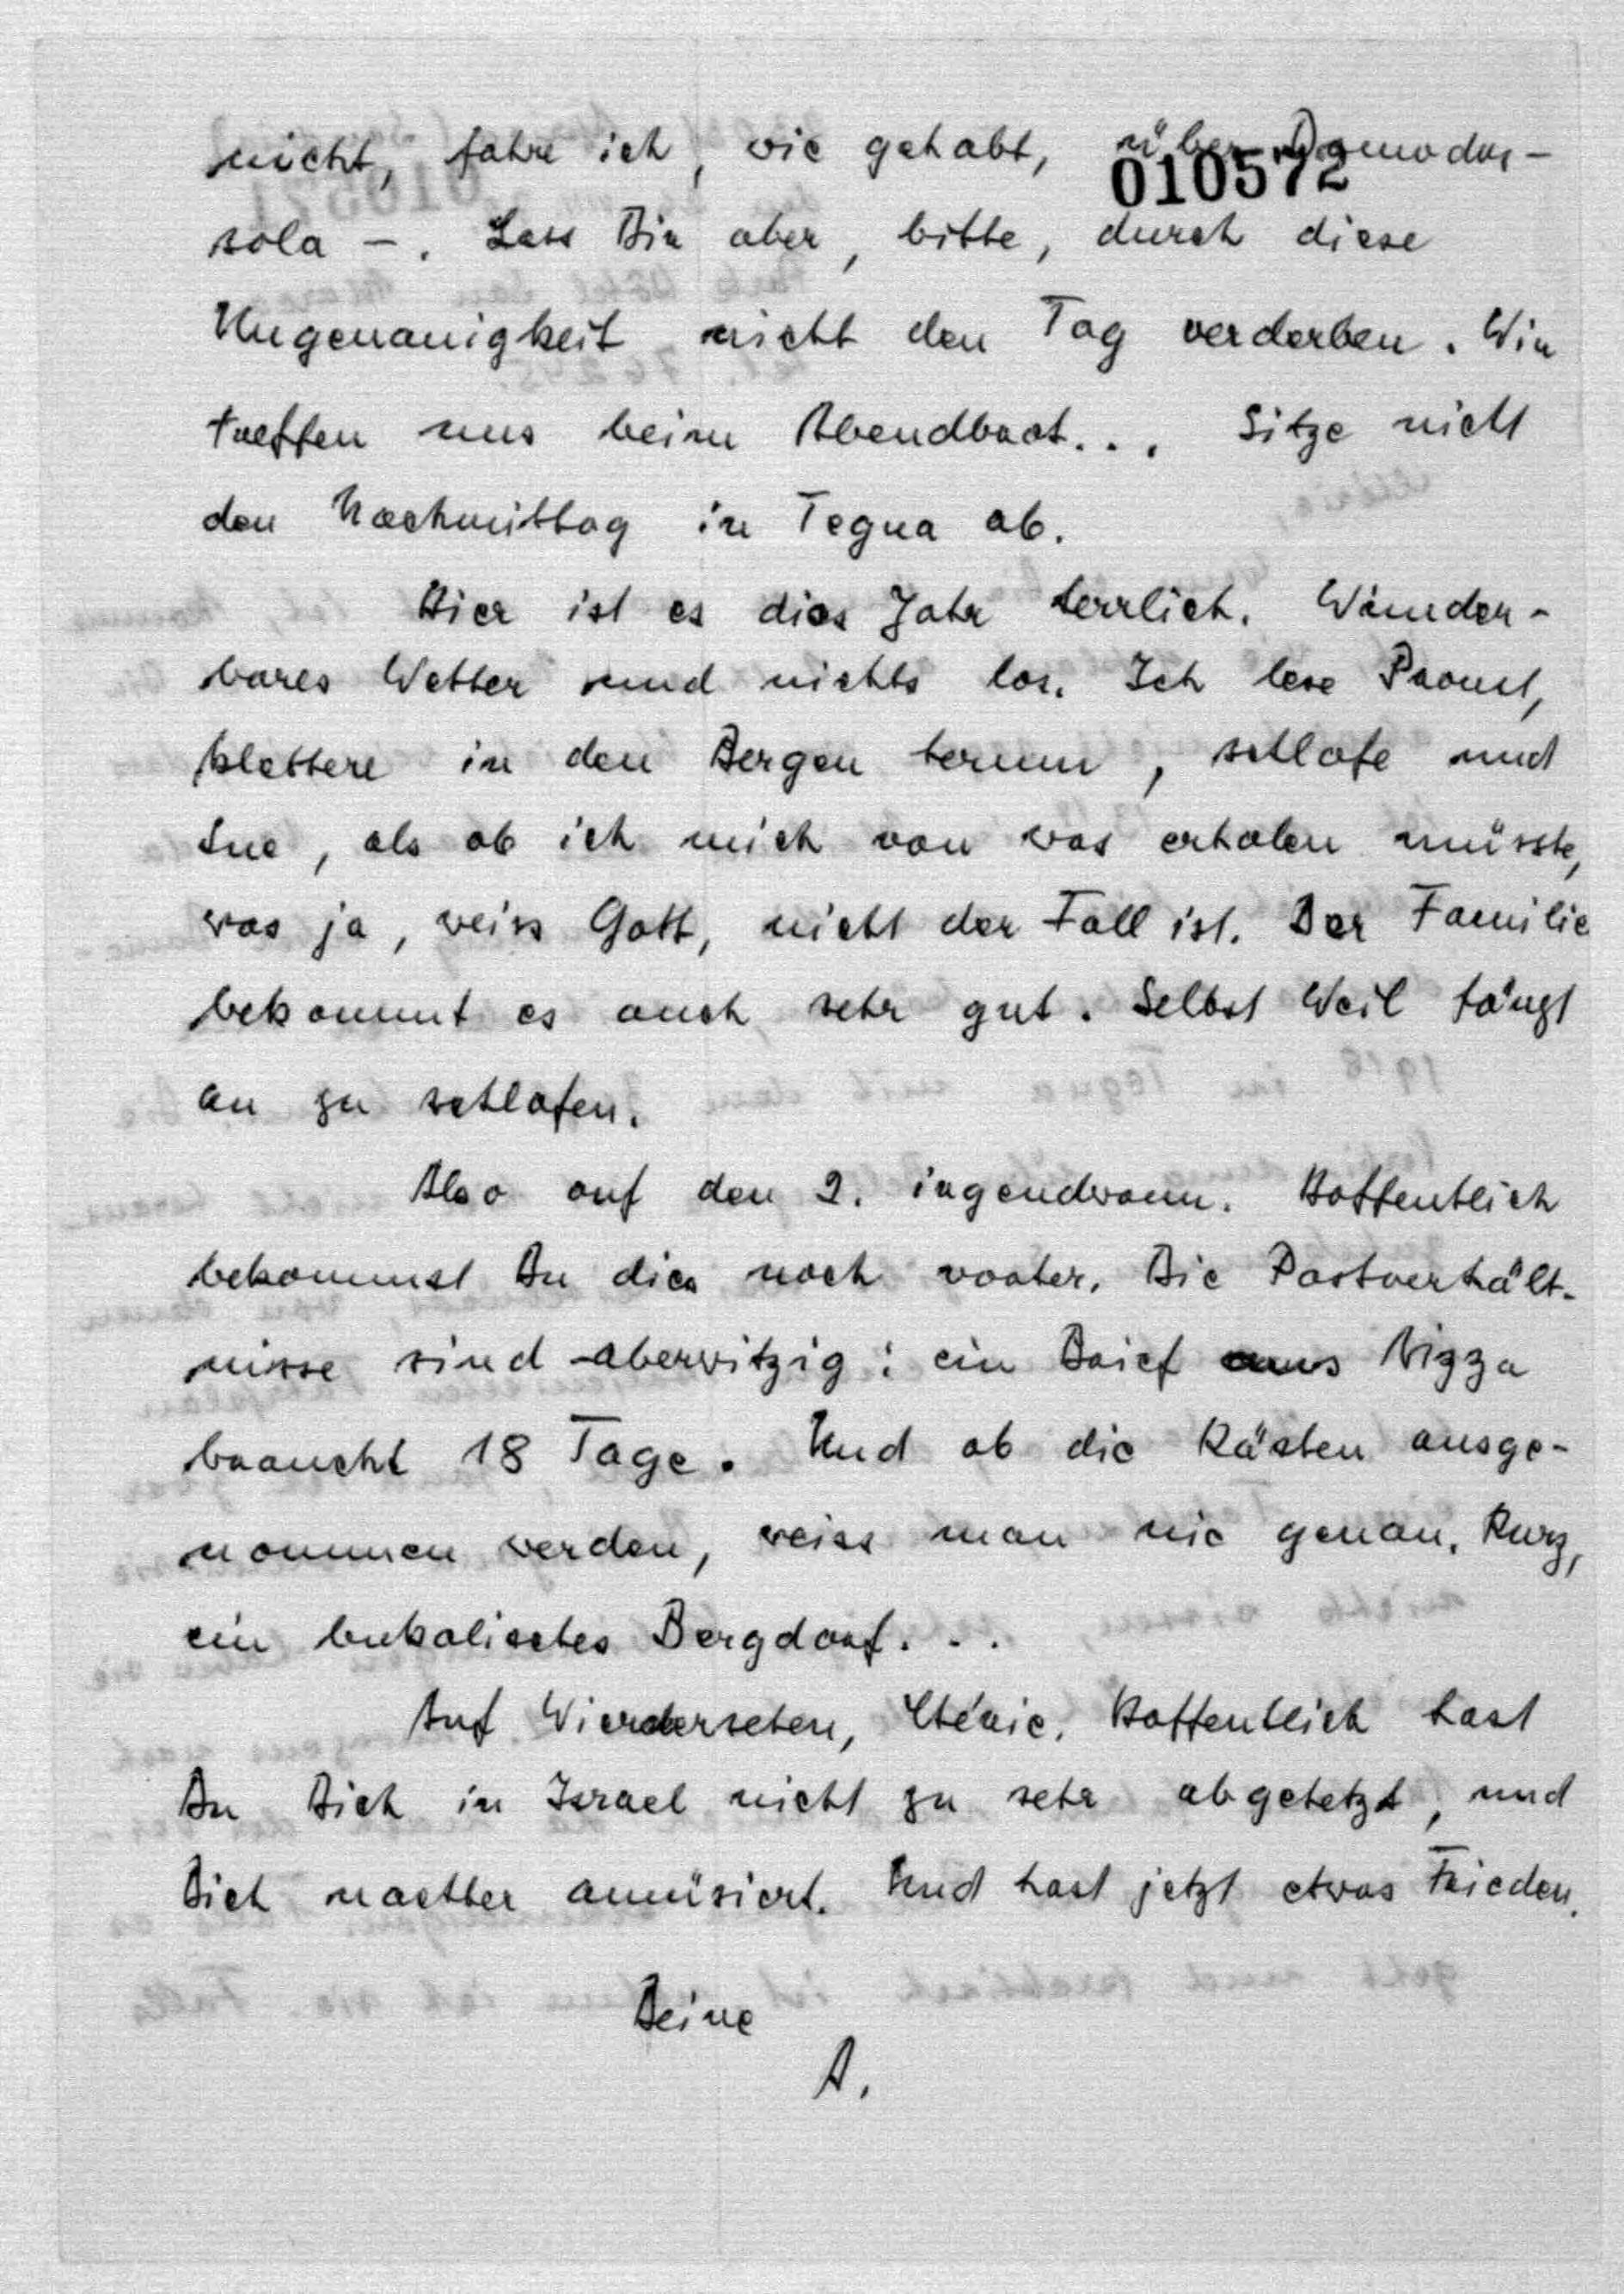 nicht, fahre ich, wie gehabt, über Domodos-
010572
sola –. Lass Dir aber, bitte, durch diese
Ungenauigkeit nicht den Tag verderben. Wir
treffen uns beim Abendbrot... Sitze nicht
den Nachmittag in Tegna ab.
Hier ist es dies Jahr herrlich. Wunder-
bares Wetter und nichts los. Ich lese Proust,
klettere in den Bergen herum, schlafe und
tue, als ob ich mich von was erholen müsste,
was ja, weiss Gott, nicht der Fall ist. Der Familie
bekommt es auch sehr gut. Selbst Weil fängt
an zu schlafen.
Also auf den 2. irgendwann. Hoffentlich
bekommst Du dies noch vorher. Die Postverhält-
nisse sind aberwitzig: ein Brief aus Nizza
braucht 18 Tage. Und ob die Kästen ausge-
nommen werden, weiss man nie genau. Kurz,
ein bukolisches Bergdorf...
Auf Wiedersehen, Chérie. Hoffentlich hast
Du Dich in Israel nicht zu sehr abgehetzt, und
Dich nachher amüsiert. Und hast jetzt etwas Frieden.
Deine
A.